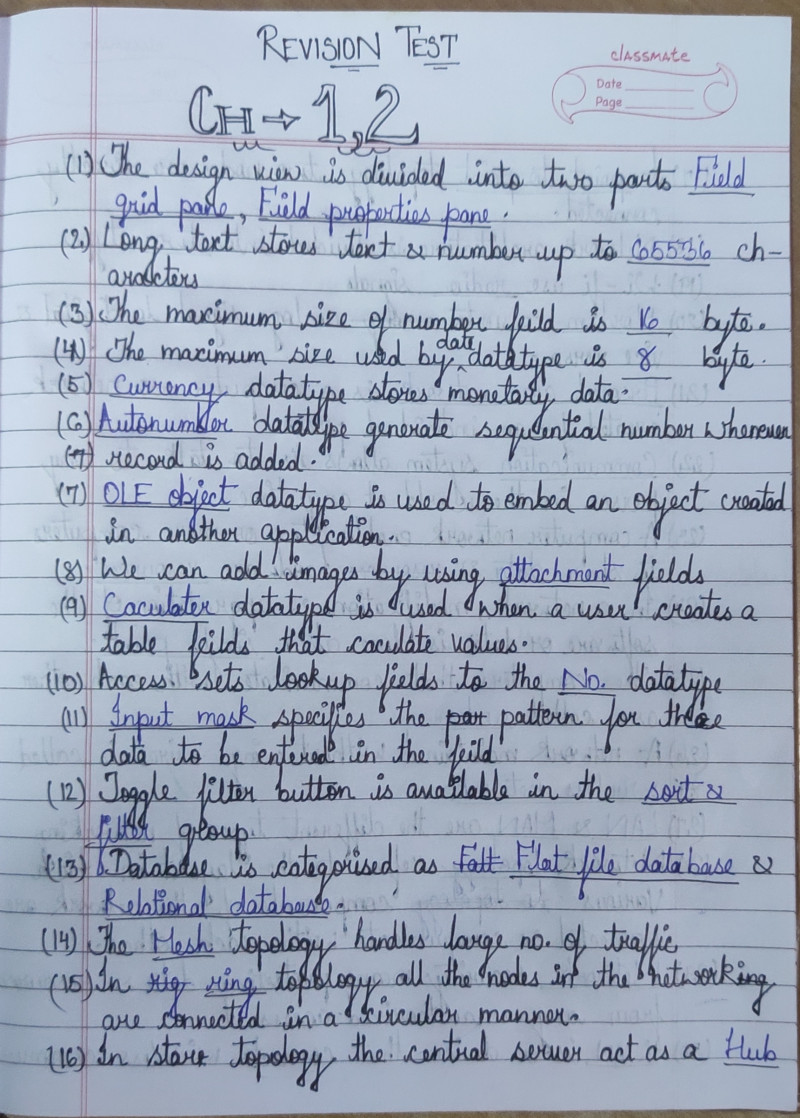 REVISION TEST
classmate
Date
Page
CH → 1,2
(1) The design view is divided into two parts Field
grid pane, Field properties pane.
(2) Long text stores text & number up to 65536 ch-
aracters
(3) The maximum size of number feild is 16 byte.
(4) The maximum size used by date datatype is 8 byte.
(5) Currency datatype stores monetary data.
(6) Autonumber datatype generate sequential number whenever
(7) record is added.
(7) OLE object datatype is used to embed an object created
in another application.
(8) We can add images by using attachment fields
(9) Caculater datatype is used when a user creates a
table feilds that caculate values.
(10) Access sets lookup fields to the No. datatype
(11) Input mask specifies the par pattern for the
data to be entered in the feild
(12) Toggle filter button is available in the sort &
filter group.
(13) Database is categorised as Fatt Flat file database &
Relational database.
(14) The Mesh topology handles large no. of traffic
(15) In rig ring topology all the nodes in the networking
are connected in a circular manner.
(16) In star topology the central server act as a Hub